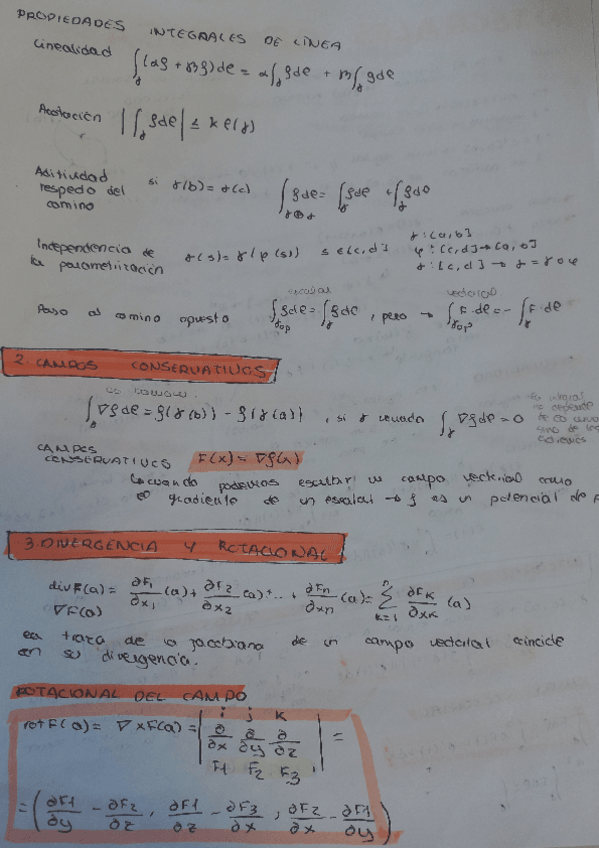 PROPIEDADES INTEGRALES DE LÍNEA
Linealidad ∫_γ (αf + βg)dℓ = α∫_γ f dℓ + β∫_γ g dℓ
Acotación |∫_γ f dℓ| ≤ K ℓ(γ)
Aditividad respecto del camino si γ(b) = σ(c) ∫_{γ⊕σ} f dℓ = ∫_γ f dℓ + ∫_σ f dℓ
γ: [a,b]
Independencia de la parametrización σ(s) = γ(φ(s)) s ∈ [c,d] φ: [c,d] → [a,b]
σ: [c,d] → σ = γ∘φ
escalar vectorial
Paso al camino opuesto ∫_{γop} f dℓ = ∫_γ f dℓ, pero → ∫_{γop} F·dℓ = - ∫_γ F·dℓ
2. CAMPOS CONSERVATIVOS
∫_γ ∇f dℓ = f(γ(b)) - f(γ(a)), si γ cerrado ∫_γ ∇f dℓ = 0
la integral no depende de la curva sino de los
CAMPOS CONSERVATIVOS F(x) = ∇f(x)
↳ cuando podemos escribir un campo vectorial como
el gradiente de un escalar → f es un potencial de F
3. DIVERGENCIA Y ROTACIONAL
div F(a) = ∂F1/∂x1 (a) + ∂F2/∂x2 (a) + ... + ∂Fn/∂xn (a) = Σ_{k=1}^{n} ∂Fk/∂xk (a)
∇F(a)
la traza de la jacobiana de un campo vectorial coincide
en su divergencia.
ROTACIONAL DEL CAMPO
rot F(a) = ∇ x F(a) = | i j k ; ∂/∂x ∂/∂y ∂/∂z ; F1 F2 F3 | =
= (∂F1/∂y - ∂F2/∂z, ∂F1/∂z - ∂F3/∂x, ∂F2/∂x - ∂F1/∂y)